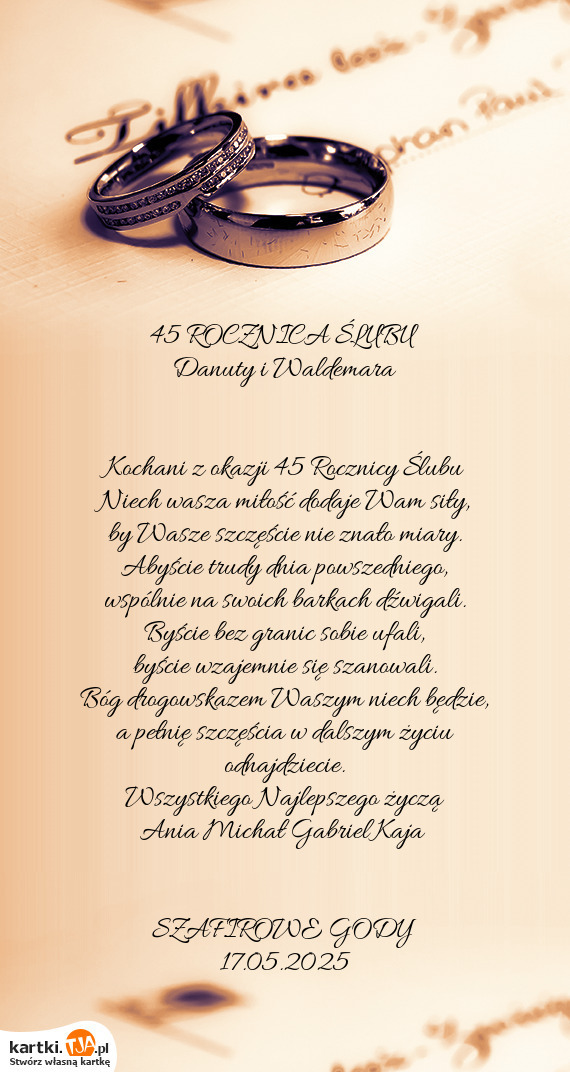 45 ROCZNICA ŚLUBU
Danuty i Waldemara
Kochani z okazji 45 Rocznicy Ślubu
Niech wasza miłość dodaje Wam siły,
by Wasze szczęście nie znało miary.
Abyście trudy dnia powszedniego,
wspólnie na swoich barkach dźwigali.
Byście bez granic sobie ufali,
byście wzajemnie się szanowali.
Bóg drogowskazem Waszym niech będzie,
a pełnię szczęścia w dalszym życiu
odnajdziecie.
Wszystkiego Najlepszego życzą
Ania Michał Gabriel Kaja
SZAFIROWE GODY
17.05.2025
kartki.TJA.pl
Stwórz własną kartkę